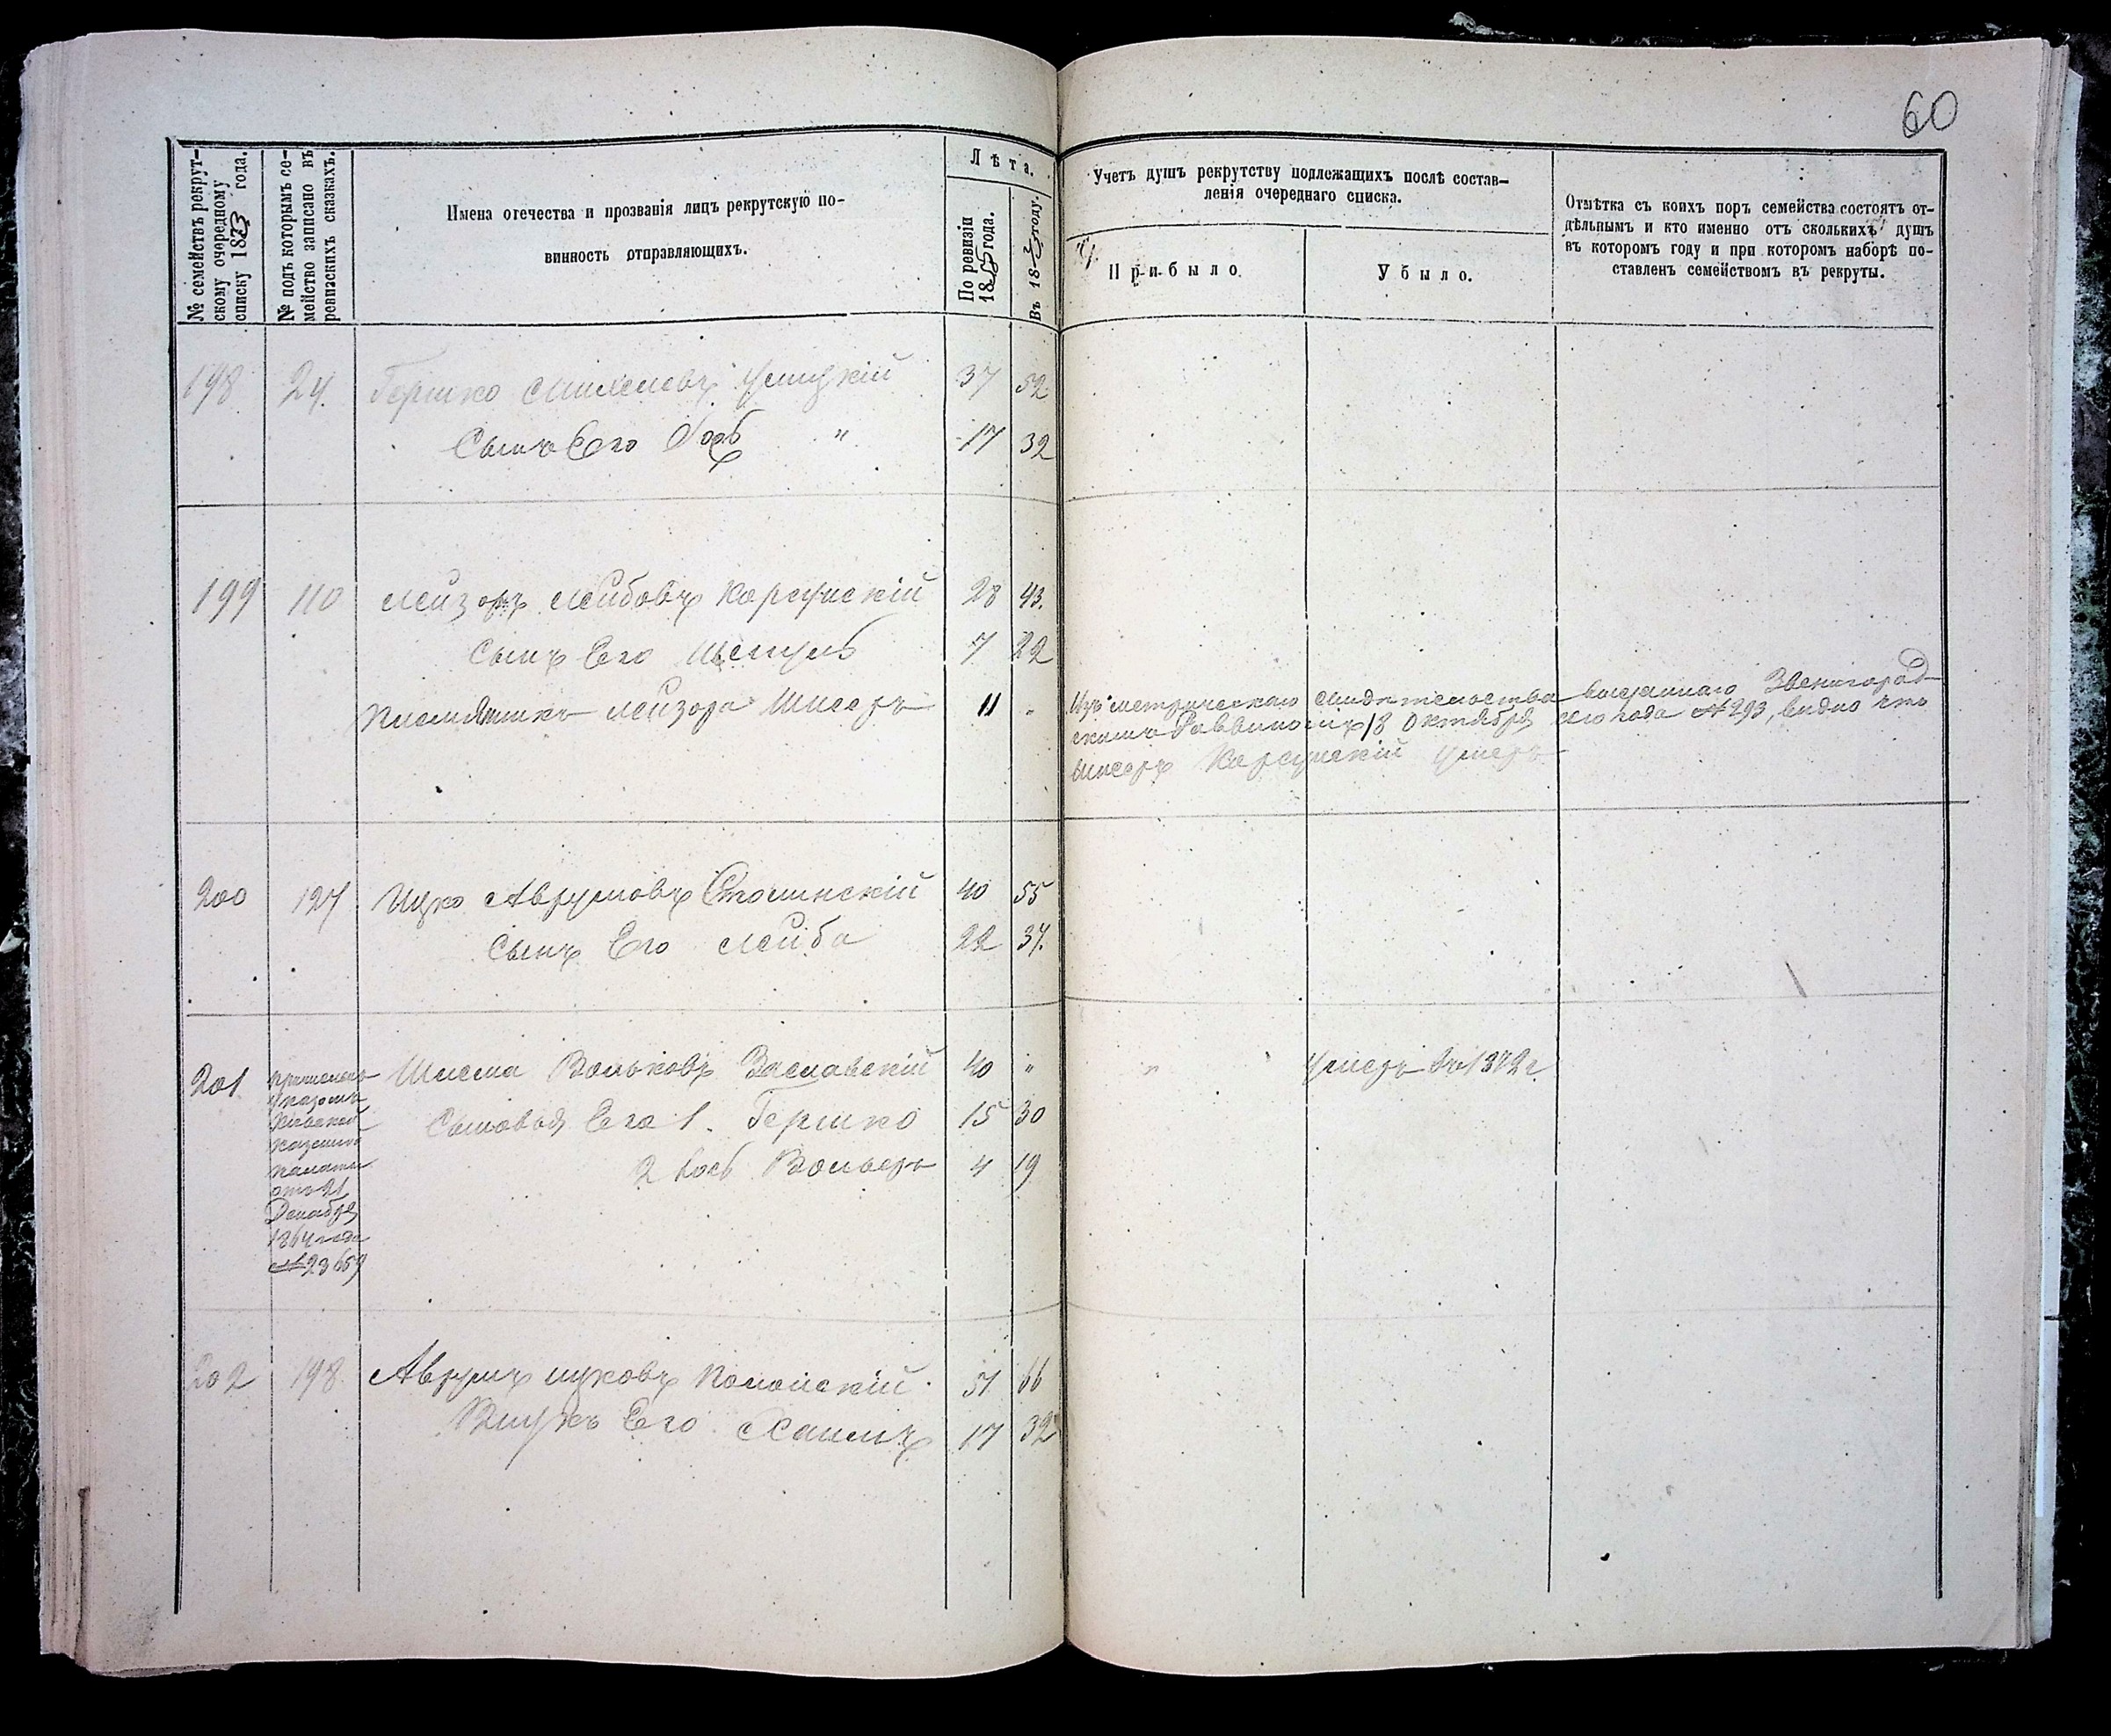 60
№ семействъ рекрут-
скому очередному
списку 1873 года.
№ подъ которымъ се-
мейство записано въ
ревизскихъ сказкахъ.
Имена отечества и прозванія лицъ рекрутскую по-
винность отправляющихъ.
Лѣта.
По ревизіи
1858 года.
Въ 1873 году.
Учетъ душъ рекрутству подлежащихъ послѣ состав-
ленія очереднаго списка.
Прибыло.
Убыло.
Отмѣтка съ коихъ поръ семейства состоятъ от-
дѣльнымъ и кто именно отъ сколькихъ душъ
въ которомъ году и при которомъ наборѣ по-
ставленъ семействомъ въ рекруты.
198 24. Гершко Михелевъ Усицкій 37 52
Сынъ Его " 17 32
199 110 Лейзоръ Лейбовъ Корсунскій 28 43.
Сынъ Его 7 22
Племянникъ Лейзора 11 "
Изъ метрическаго свидѣтельства выданнаго Звенигород-
скимъ Раввиномъ 18 Октября сего года № 293, видно что
Корсунскій умеръ
200 127 Ицко Аврумовъ 40 55
Сынъ Его Лейба 22 37.
201 Шлема Вольковъ Заславскій 40 " " умеръ въ 1872 г.
причисленъ
указомъ
Кіевской
Казенной
Палаты
отъ 21
Декабря
1864 года
№ 23659
Сыновья Его 1. Гершко 15 30
2 Вольвъ 4 19
202 198. Аврумъ Ицковъ 51 66
Внукъ Его Хаимъ 17 32